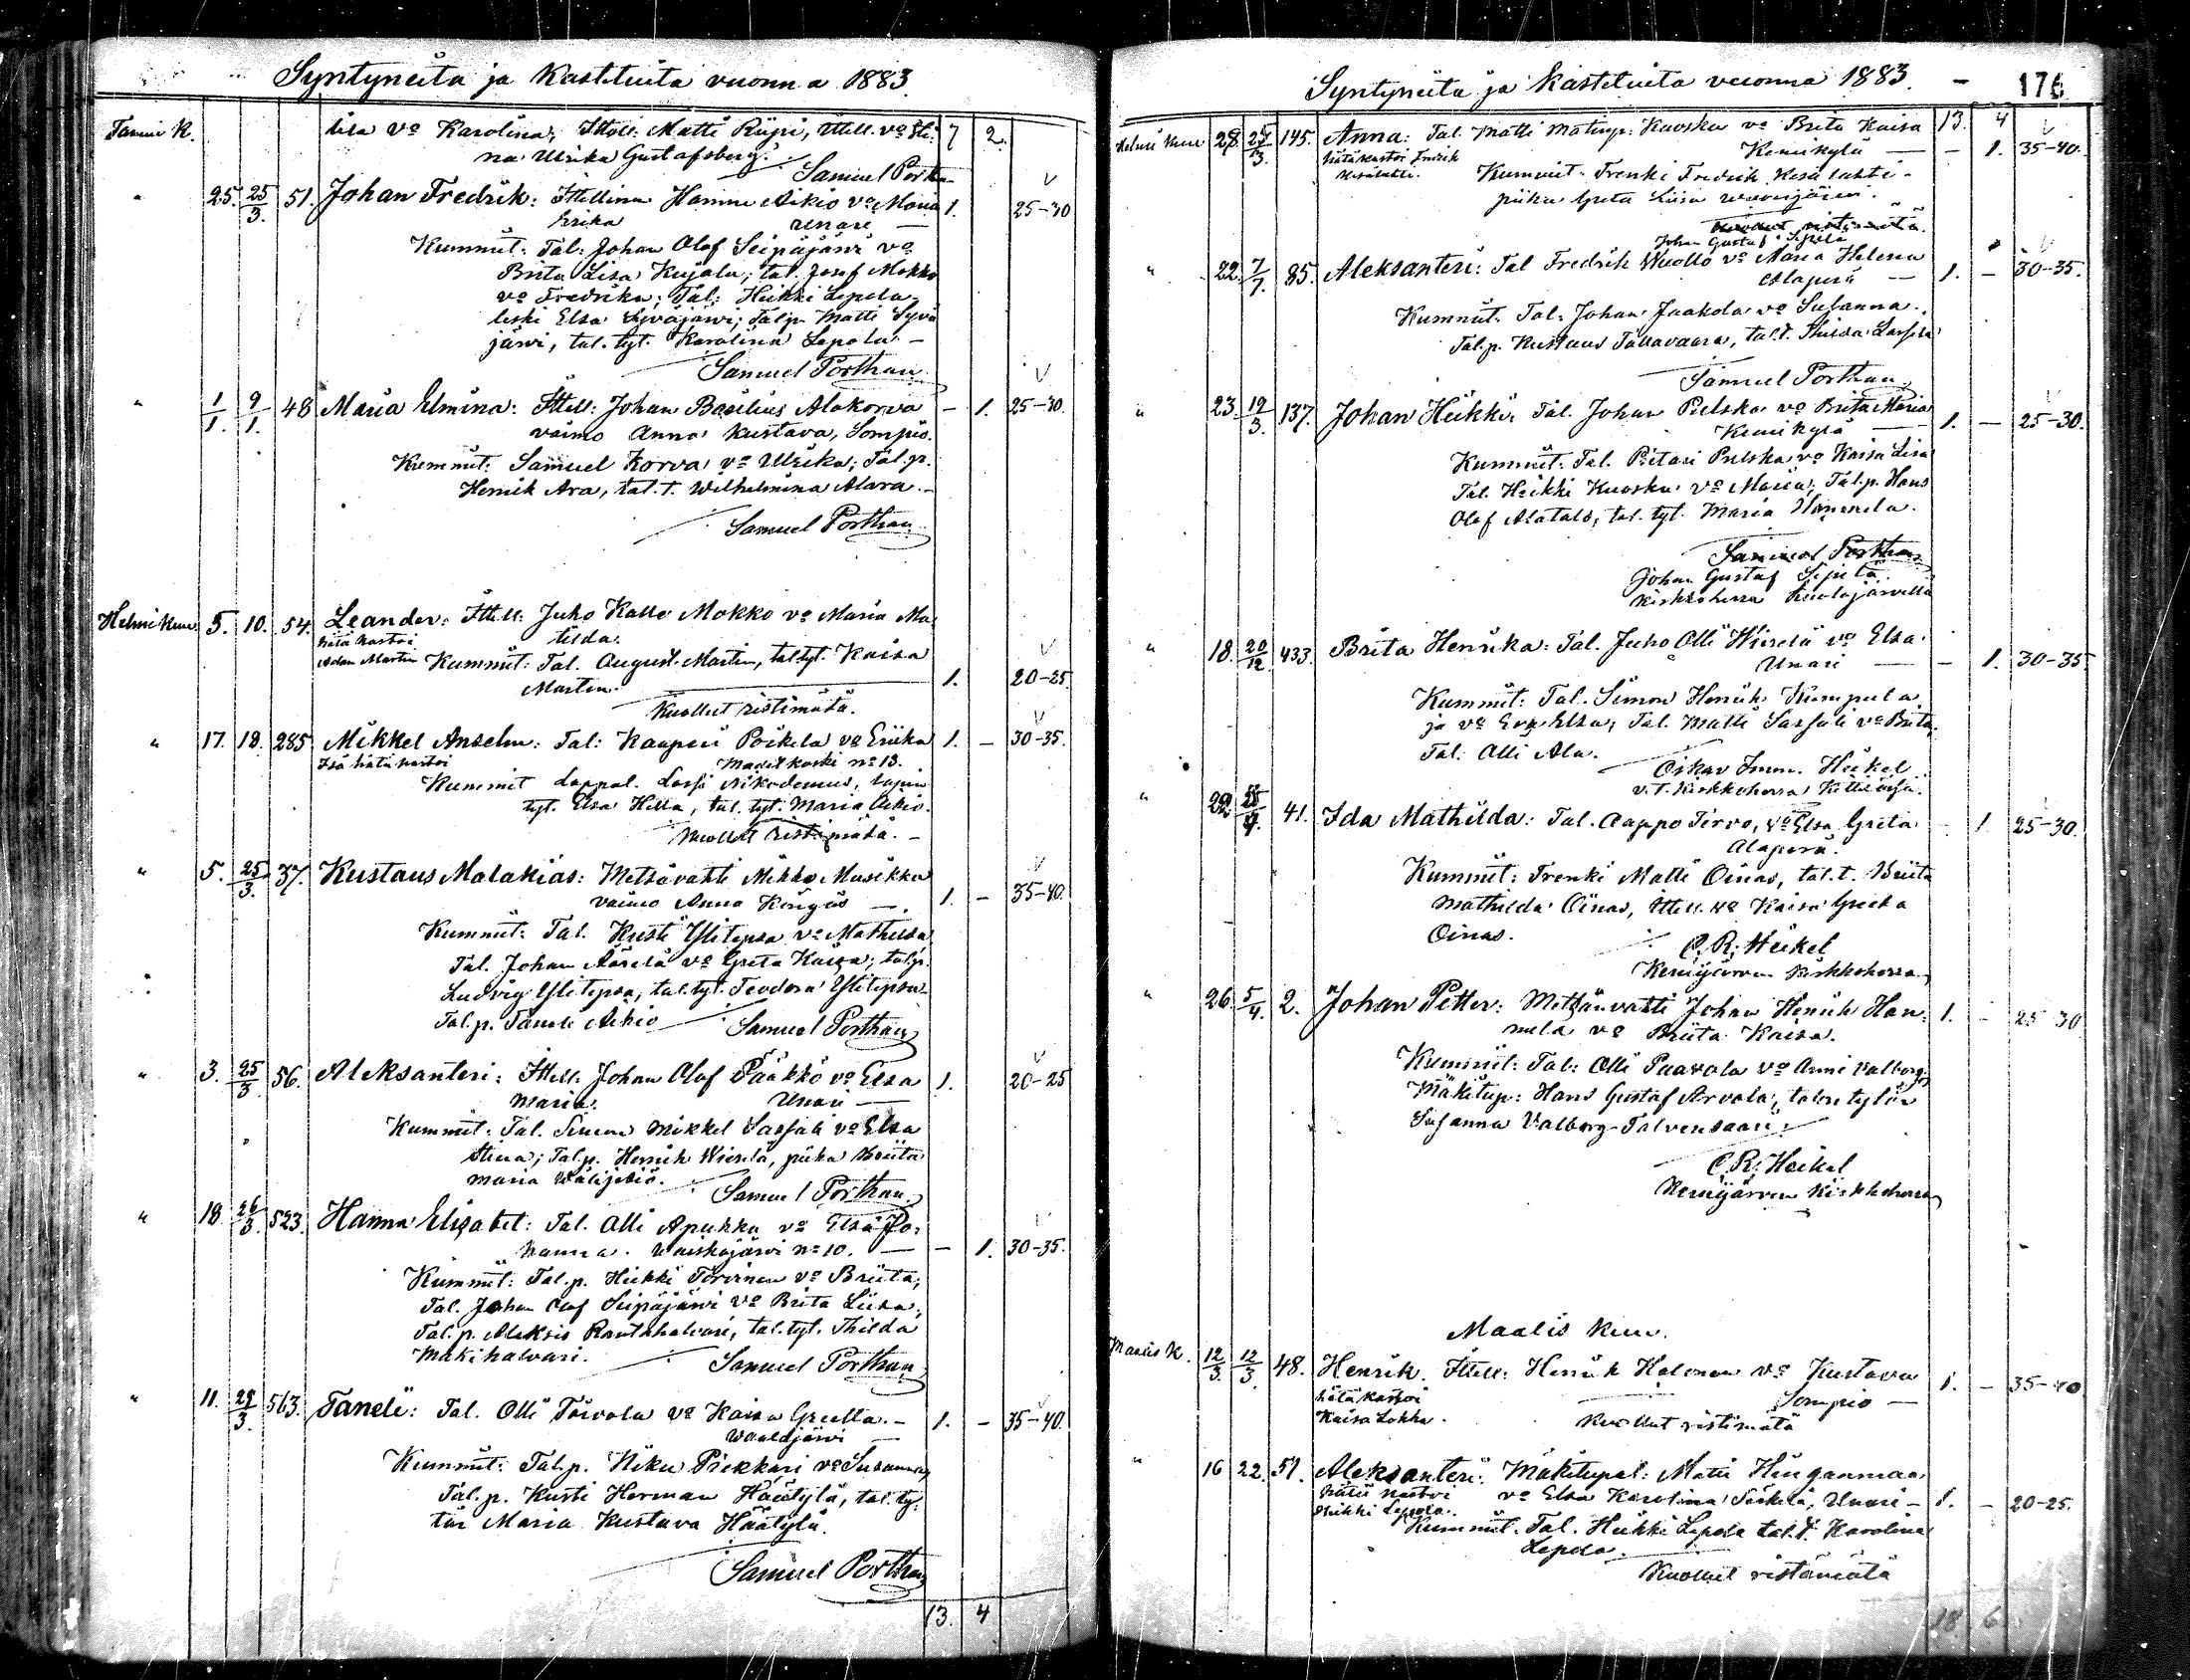 Syntyneitä ja Kastetuita vuonna 1883.
Tammi K. liisa vo Karolina; Ittell. Matti Riipi, Ittell. vo Sti- 7 2.
na Ulrika Gustafsberg.
Samuel Porthan
" 25. 25/3. 51. Johan Fredrik: Ittellinen Hannu Aikio vo Maria 1. 25-30
Erika Unari —
Kummit: Tal: Johan Olof Seipäjärvi vo
Brita Lisa Kujala; tal. Josef Mokko
vo Fredrika; Tal: Heikki Lepola,
leski Elsa Syväjärvi; tal.p. Matti Syvä
järvi, tal. tyt. Karolina Lepola —
Samuel Porthan
" 1/1. 9/1. 48 Maria Elmina: Ittell: Johan Basilius Alakorva — 1. 25-30.
vaimo Anna Kustava, Sompio.
Kummit: Samuel Korva vo Ulrika; Tal.p.
Henrik Ara, tal. t. Wilhelmina Alara. —
Samuel Porthan
Helmikuu 5. 10. 54. Leander: Ittell: Juho Kalle Mokko vo Maria Ma-
hätä kastoi tilda.
Adam Martin Kummit: Tal. August Martin, tal.tyt. Kaisa
Martin. 1. 20-25.
Kuollut ristimätä.
" 17. 18. 285 Mikkel Anselm: Tal: Kaaperi Poikela vo Eriika 1. — 30-35.
Isä hätä kastoi Madetkoski no 13.
Kummit Lappal. Lassi Nikodemus, lapin
tyt. Elsa Hilla, tal. tyt. Maria Aikio.
Kuollut ristimätä. —
" 5. 25/3. 37. Kustaus Malakias: Metsävahti Mikko Musikka
vaimo Anna Köngäs —. 1. — 35-40.
Kummit: Tal. Kusti Ylitepsa vo Mathilda,
Tal. Johan Äärelä vo Greta Kaisa; tal.p.
Ludvig Ylitepsa, tal.tyt. Teodora Ylitepsa
Tal.p. Taneli Aikio — Samuel Porthan
" 3. 25/3 56. Aleksanteri: Ittell: Johan Olof Pääkkö vo Elsa 1. 20-25
Maria. Unari —
Kummit: Tal. Simon Mikkel Sassali vo Elsa
Stina; Tal.p. Henrik Wierelä, piika Briita
Maria Wälijesiö.
Samuel Porthan
" 18. 26/3. 523. Hanna Elisabet: Tal. Olli Apukka vo Elsa Jo-
hanna. Waiskojärvi no 10. — — 1. 30-35.
Kummit: Tal.p. Heikki Torvinen vo Briita;
Tal. Johan Olof Seipäjärvi vo Brita Liisa;
Tal.p. Aleksis Rautahalvari, tal.tyt. Thilda
Mäkihalvari.
Samuel Porthan
" 11. 29/3. 563. Taneli: Tal. Olli Toivola vo Kaisa Greetta. — 1. — 35-40.
Waalajärvi —
Kummit: Tal.p. Niku Piekkari vo Susanna,
Tal.p. Kusti Herman Häätylä, tal. ty-
tär Maria Kustava Häätylä.
Samuel Porthan
13. 4
Syntyneitä ja Kastetuita vuonna 1883. — 176
Helmi kuu 28. 27/3. 145. Anna: Tal. Matti Mat.inp: Kuoska vo Brita Kaisa 13. 4
Hätäkastoi Fredrik Kemikylä — — 1. 35-40.
Kesälahti. Kummit: Trenki Fredrik Kesälahti —
piika Greta Liisa
Kuollut ristimätä.
Johan Gustaf Sipilä
" 22. 7/7. 85. Aleksanteri: Tal Fredrik Wuollo vo Maria Helena
Alaperä — 1. — 30-35.
Kummit: Tal: Johan Jaakola vo Susanna.
Tal.p. Kustaus Tallavaara, tal.t. Thilda Lassila
Samuel Porthan
" 23. 19/3. 137. Johan Heikki: Tal. Johan Pulska vo Brita Maria
Kemikylä — 1. — 25-30.
Kummit: Tal. Pietari Pulska vo Kaisa Liisa
Tal. Heikki Kuoska vo Maria; Tal.p. Hans
Olof Alatalo, tal. tyt. Maria Hannula.
Samuel Porthan
Johan Gustaf Sipilä
kirkkoherra Kuolajärvellä
" 18. 20/12. 433. Brita Henrika: Tal. Juho Olli Wiirelä vo Elsa
Unari — — 1. 30-35
Kummit: Tal. Simon Henrik Kumpula
ja vo Eva Elsa; Tal. Matti Sassali vo Brita.
Tal. Olli Ala.
Oskar Imm. Heikel
v.t. Kirkkoherra Kittilässä.
" 41. Ida Mathilda: Tal. Aappo Tervo, vo Elsa Greta — 1. 25-30.
Alaperä.
Kummit: Trenki Matti Oinas, tal.t. Briita
Mathilda Oinas, Ittell. vo Kaisa Greeta
Oinas.
C. R. Heikel
Kemijärven kirkkoherra
" 26. 5/4. 2. Johan Petter: Mettänvahti Johan Henrik Han- 1. — 25-30
nula vo Briita Kaisa.
Kummit: Tal: Olli Paavola vo Anni Valborg;
Mäkitup: Hans Gustaf Arvola, talon tytär
Susanna Valborg Talvensaari.
C. R. Heikel
Kemijärven kirkkoherra
Maalis kuu.
Maalis K. 12/3. 12/3. 48. Henrik. Ittell: Henrik Halonen vo Kustava 1. — 35-40
hätäkastoi Sompio —
Kaisa Lokka. Kuollut ristimätä
" 16 22. 51. Aleksanteri: Mäkitupal: Matti Hiiganmaa
Hätä kastoi vo Elsa Karolina Unari — 1. — 20-25.
Heikki Lepola. Kummit. Tal. Heikki Lepola tal.t. Karolina
Lepola.
Kuollut ristimätä
18. 6